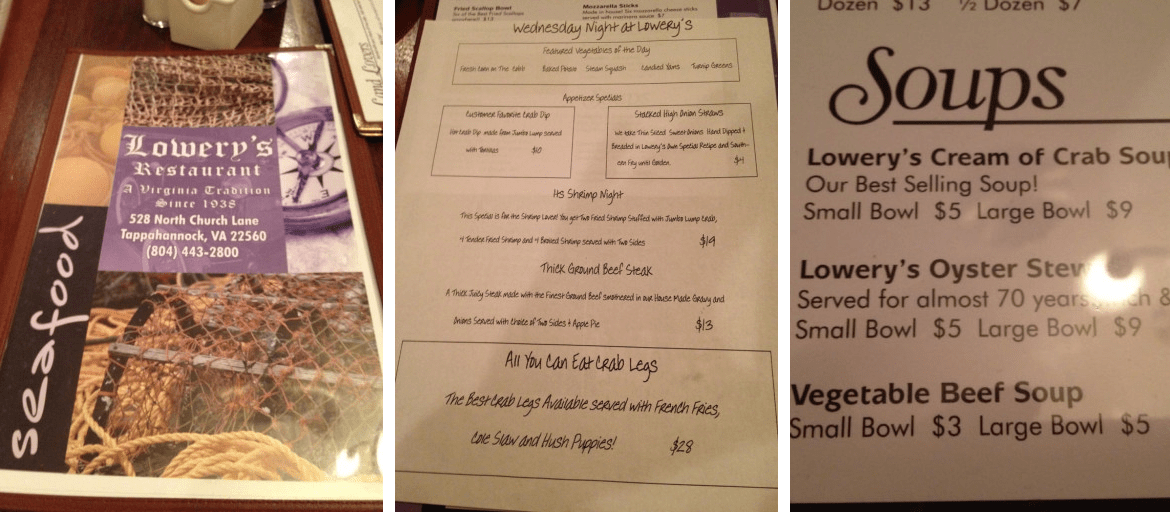 Land Lovers
Lowery's
Restaurant
A Virginia Tradition
Since 1938
528 North Church Lane
Tappahannock, VA 22560
(804) 443-2800
seafood
Fried Scallop Bowl
Mozzarella Sticks
Made in house! Six mozzarella cheese sticks
served with marinara sauce $7
Wednesday Night at Lowery's
Featured Vegetables of the Day
Fresh Corn on The Cobb Baked Potato Steam Squash Candied Yams Turnip Greens
Appetizer Specials
Customer Favorite Crab Dip
Hot Crab Dip made from Jumbo Lump served
with Tortillas $10
Stacked High Onion Straws
We take Thin Sliced Sweet Onions Hand Dipped &
Breaded in Lowery's Own Special Recipe and South-
ern Fry until Golden. $4
Its Shrimp Night
This Special is for the Shrimp Lover! You get Two Fried Shrimp Stuffed with Jumbo Lump Crab,
4 Tender Fried Shrimp and 4 Broiled Shrimp served with Two Sides $19
Thick Ground Beef Steak
A Thick Juicy Steak made with the Finest Ground Beef smothered in our House Made Gravy and
Onions Served with Choice of Two Sides & Apple Pie $13
All You Can Eat Crab Legs
The Best Crab Legs Available served with French Fries,
Cole Slaw and Hush Puppies! $28
Dozen $13 ½ Dozen $7
Soups
Lowery's Cream of Crab Sou
Our Best Selling Soup!
Small Bowl $5 Large Bowl $9
Lowery's Oyster Stew
Served for almost 70 years
Small Bowl $5 Large Bowl $9
Vegetable Beef Soup
Small Bowl $3 Large Bowl $5